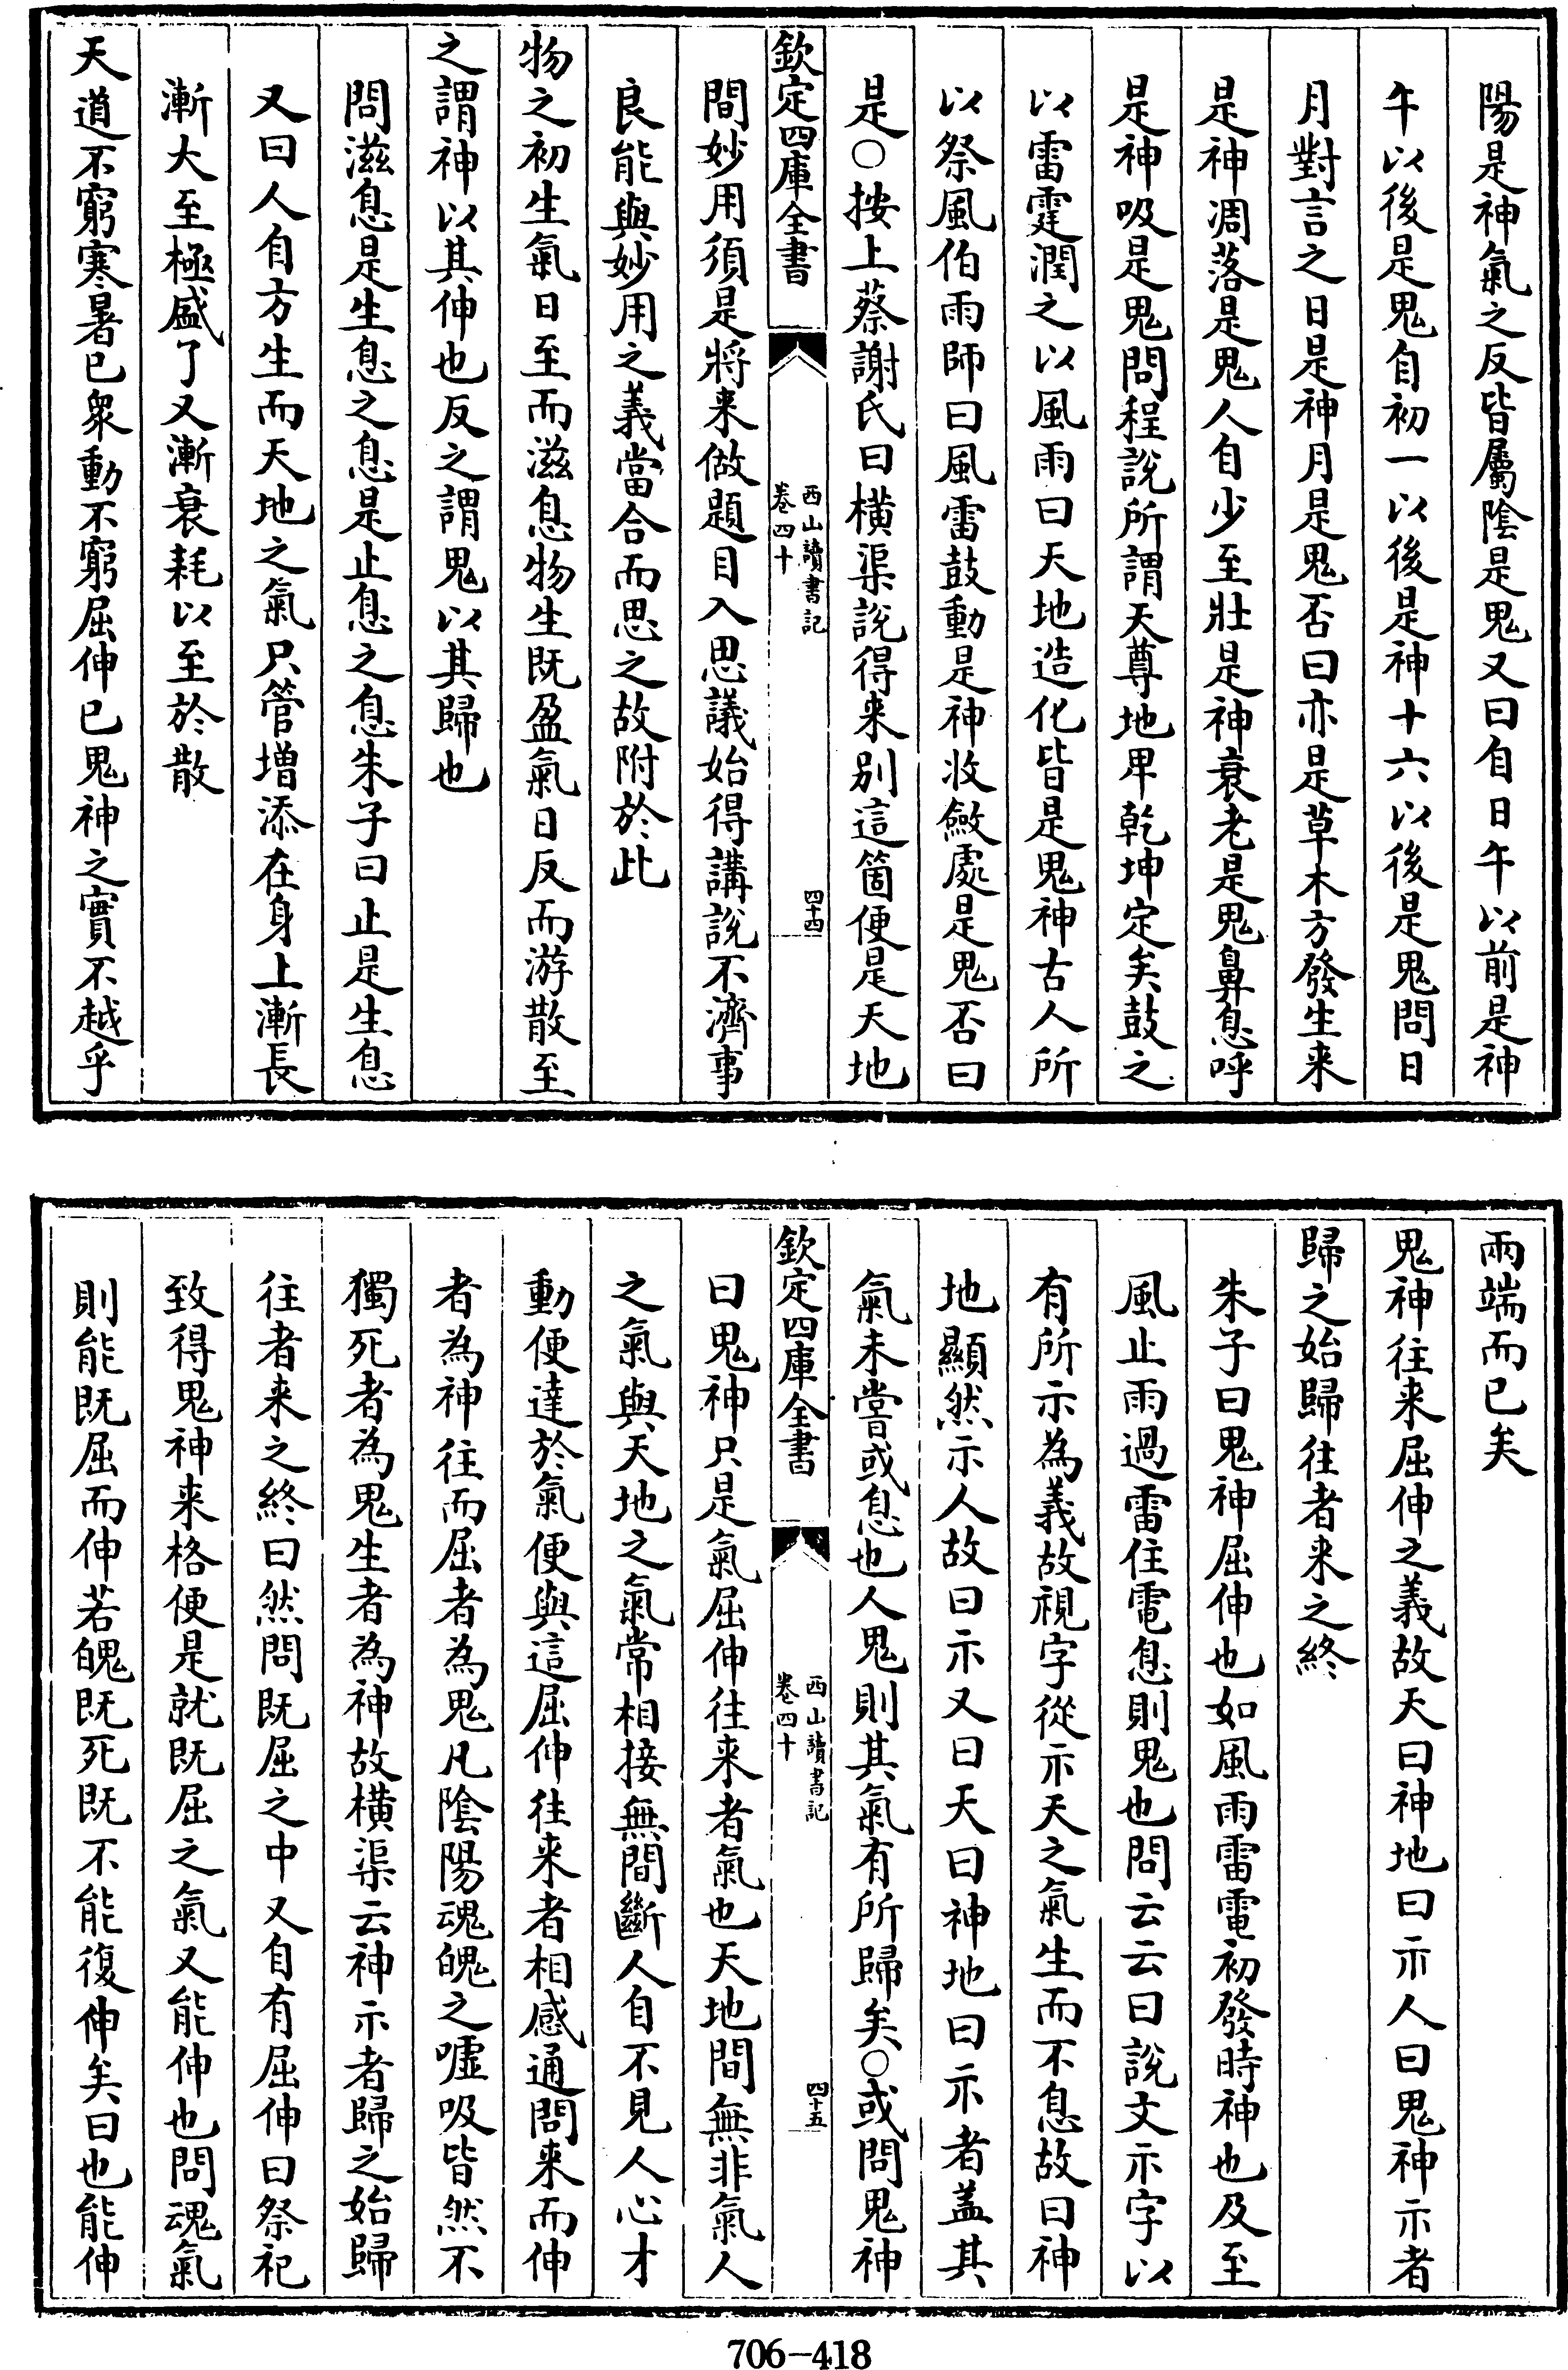 陽是神氣之反皆屬隂是鬼又曰自日午以前是神
午以後是鬼自初一以後是神十六以後是鬼問日
月對言之日是神月是鬼否曰亦是草木方發生来
是神凋落是鬼人自少至壯是神衰老是鬼鼻息呼
是神吸是鬼問程說所謂天尊地卑乾坤定矣鼓之
以雷霆潤之以風雨曰天地造化皆是鬼神古人所
以祭風伯雨師曰風雷鼓動是神收斂處是鬼否曰
是○按上蔡謝氏曰橫渠說得来别這箇便是天地
欽定四庫全書
西山讀書記
卷四十
四十四
間妙用須是將来做題目入思議始得講說不濟事
良能與妙用之義當合而思之故附於此
物之初生氣日至而滋息物生既盈氣日反而游散至
之謂神以其伸也反之謂鬼以其歸也
問滋息是生息之息是止息之息朱子曰止是生息
又曰人自方生而天地之氣只管增添在身上漸長
漸大至極盛了又漸衰耗以至於散
天道不窮寒暑已衆動不窮屈伸已鬼神之實不越乎
兩端而已矣
鬼神往来屈伸之義故天曰神地曰示人曰鬼神示者
歸之始歸往者来之終
朱子曰鬼神屈伸也如風雨雷電初發時神也及至
風止雨過雷住電息則鬼也問云云曰說文示字以
有所示為義故視字從示天之氣生而不息故曰神
地顯然示人故曰示又曰天曰神地曰示者盖其
氣未嘗或息也人鬼則其氣有所歸矣○或問鬼神
欽定四庫全書
西山讀書記
卷四十
四十五
曰鬼神只是氣屈伸往来者氣也天地間無非氣人
之氣與天地之氣常相接無間斷人自不見人心才
動便達於氣便與這屈伸往来者相感通問来而伸
者為神往而屈者為鬼凡隂陽魂魄之噓吸皆然不
獨死者為鬼生者為神故橫渠云神示者歸之始歸
往者来之終曰然問既屈之中又自有屈伸曰祭祀
致得鬼神来格便是就既屈之氣又能伸也問魂氣
則能既屈而伸若魄既死既不能復伸矣曰也能伸
706-418